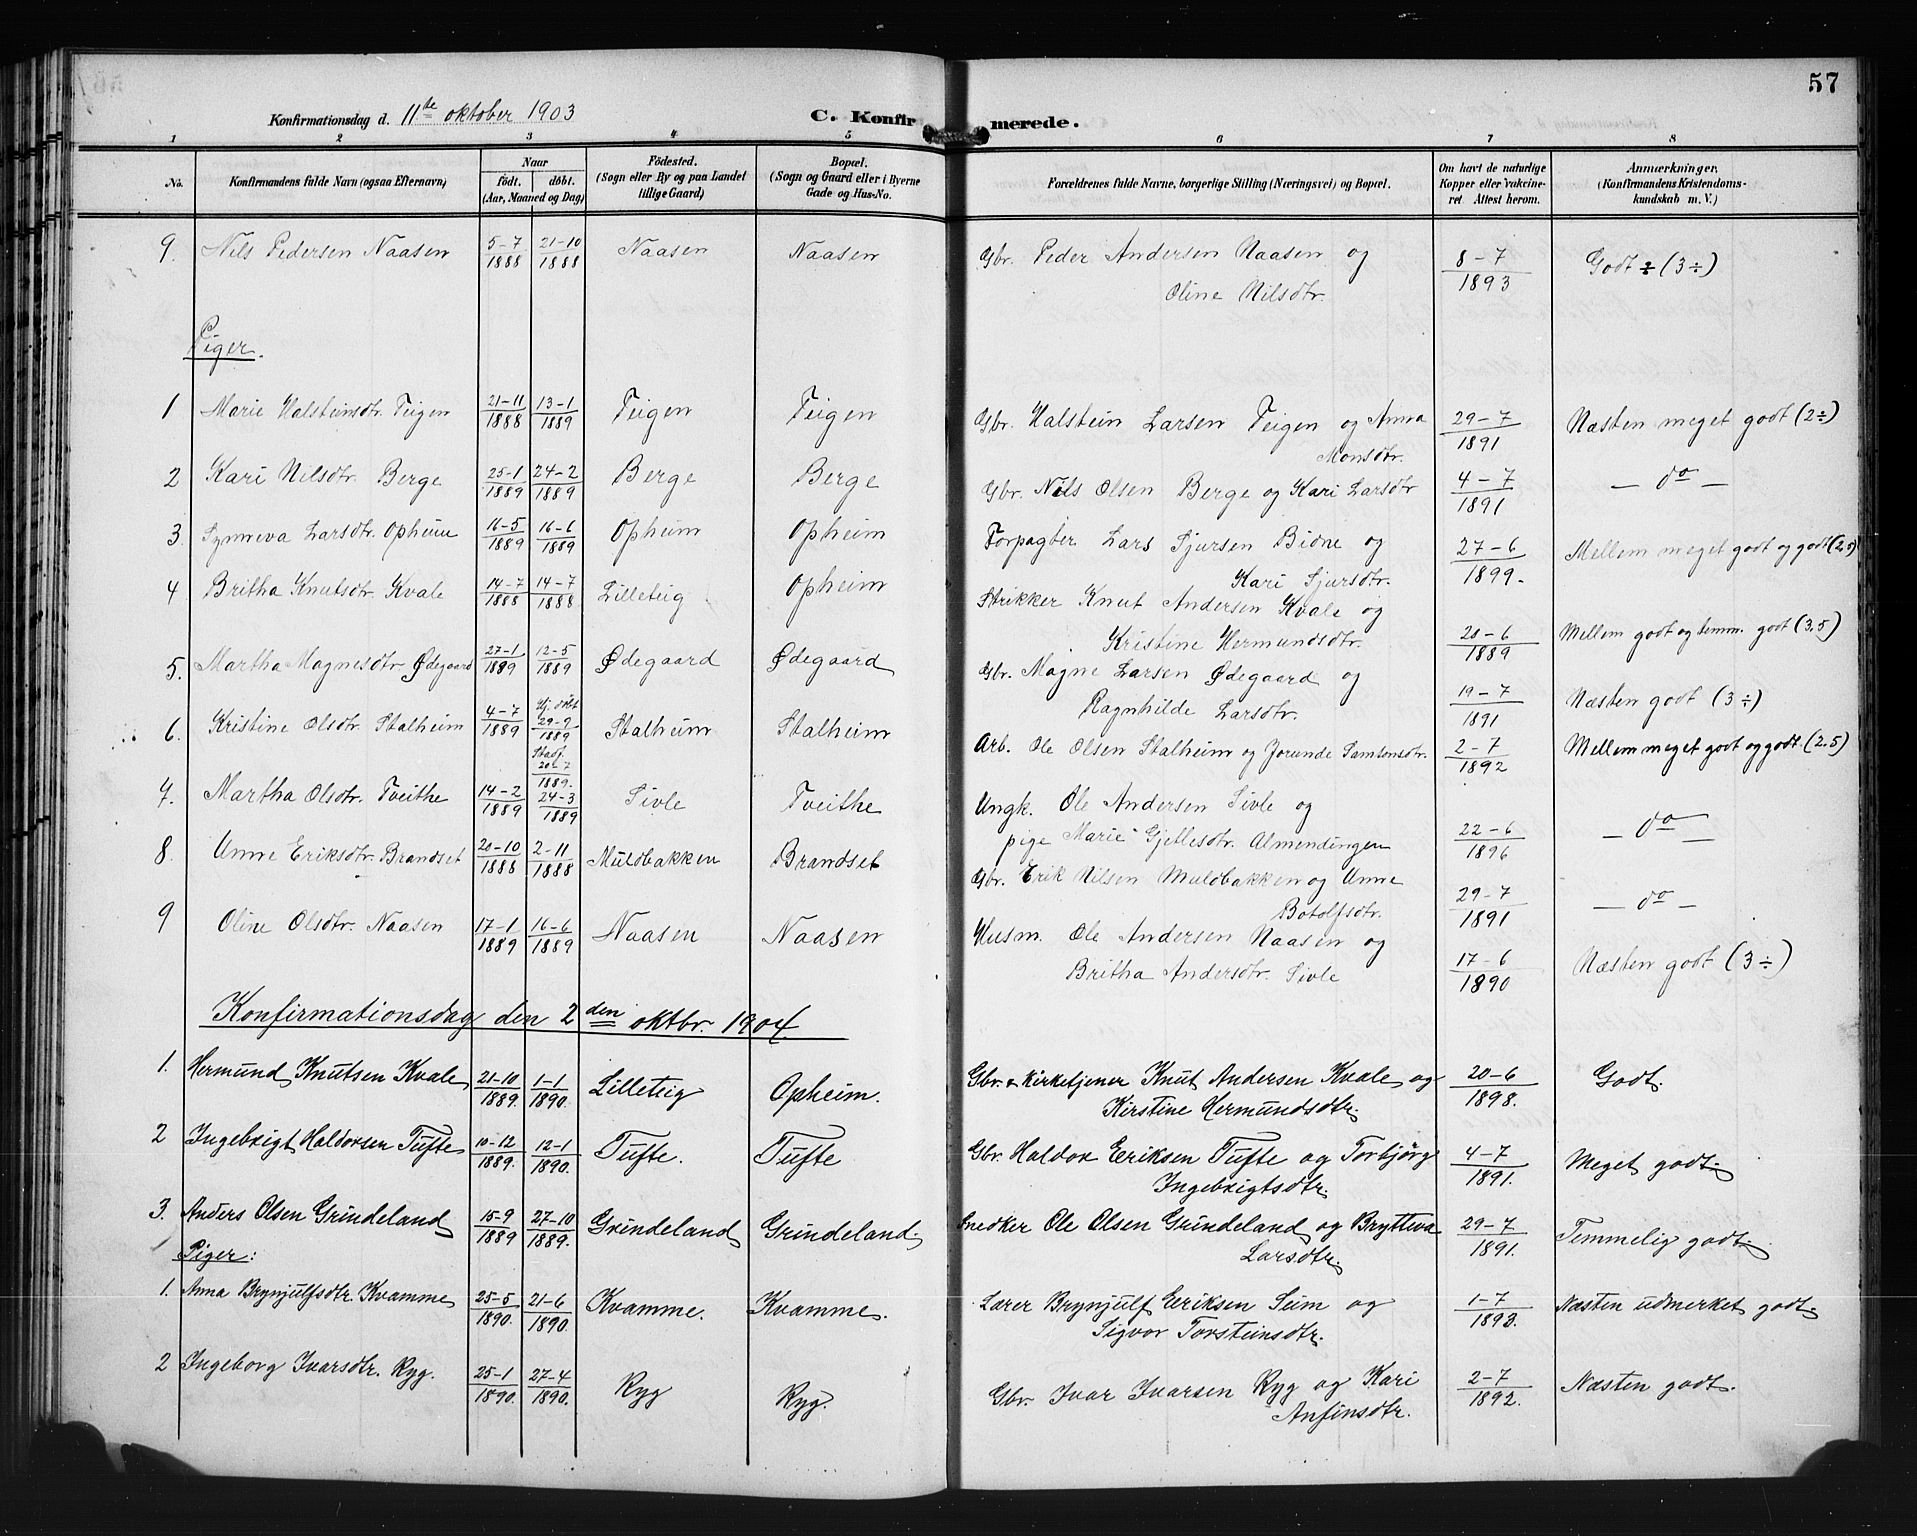 57
Konfirmationsdag d. 11te oktober 1903 C. Konfirmerede.
1 2 3 4 5 6 7 8
No. Konfirmandens fulde Navn (ogsaa Efternavn) Naar født. døbt. (Aar, Maaned og Dag) Födested. (Sogn eller By og paa Landet tillige Gaard) Bopæl. (Sogn og Gaard eller i Byerne Gade og Hus-No. Forældrenes fulde Navne, borgerlige Stilling (Næringsvei) og Bopæl. Om havt de naturlige Kopper eller vakcineret Attest herom. Anmærkninger. (Konfirmandens Kristendomskundskab m. V.)
9. Nils Pedersen Naasen 5-7 1888 21-10 1888 Naasen Naasen Gbr. Peder Andersen Naasen og 8-7 1893 Godt ÷ (3÷)
Oline Nilsdtr.
Piger.
1 Marie Halsteinsdtr. Teigen 21-11 1888 13-1 1889 Teigen Teigen Gbr. Halstein Larsen Teigen og Anna 29-7 1891 Næsten meget godt (2÷)
Monsdtr.
2 Kari Nilsdtr. Berge 25-1 1889 24-2 1889 Berge Berge Gbr. Nils Olsen Berge og Kari Larsdtr 4-7 1891 — do —
3. Synneva Larsdtr. Opheim 16-5 1889 16-6 1889 Opheim Opheim Forpagter Lars Sjursen Bidne og 27-6 1899. Mellem meget godt og godt (2,5)
Kari Sjursdtr.
4 Britha Knutsdtr. Kvale 14-7 1888 14-7 1888 Lilleteig Opheim Strikker Knut Andersen Kvale og 20-6 1889 Mellem godt og temm. godt (3,5)
Kristine Hermundsdtr.
5. Martha Magnesdtr. Ødegaard 27-1 1889 12-5 1889 Ødegaard Ødegaard Gbr. Magne Larsen Ødegaard og 19-7 1891 Næsten godt (3÷)
Ragnhilde Larsdtr.
6. Kristine Olsdtr. Stalheim 4-7 1889 Hj. döbt 29-9 1889 Stadf. 20-7 1889. Stalheim Stalheim Arb. Ole Olsen Stalheim og Jorunde Samsonsdtr. 2-7 1892 Mellem meget godt og godt. (2.5)
7. Martha Olsdtr. Tveithe 14-2 1889 24-3 1889 Sivle Tveithe Ungk. Ole Andersen Sivle og 22-6 1896 — do —
pige Marie Gjellesdtr. Almendingen
8. Unne Eriksdtr. Brandset 20-10 1888 2-11 1888 Muldbakken Brandset Gbr. Erik Nilsen Muldbakken og Unne 29-7 1891 — do —
Botolfsdtr.
9 Oline Olsdtr. Naasen 17-1 1889 16-6 1889 Naasen Naasen Husm. Ole Andersen Naasen og 17-6 1890 Næsten godt (3÷)
Britha Andersdtr. Sivle
Konfirmationsdag den 2den oktbr. 1904.
1. Hermund Knutsen Kvale 21-10 1889. 1-1 1890. Lilleteig Opheim. Gbr. & Kirketjener Knut Andersen Kvale og 20-6 1898. Godt.
Kirstine Hermundsdtr.
2 Ingebrigt Haldorsen Tufte 10-12 1889. 12-1 1890. Tufte. Tufte Gbr. Haldor Eeriksen Tufte og Torbjörg 4-7 1891. Meget godt.
Ingebrigtsdtr.
3. Anders Olsen Grindeland 15-9 1889 27-10 1889. Grindeland Grindeland. Snedker Ole Olsen Grindeland og Brytteva 29-7 1891. Temmelig godt.
Larsdtr.
Piger:
1. Anna Brynjulfsdtr. Kvamme 25-5 1890. 21-6 1890. Kvamme. Kvamme. Lærer Brynjulf Eeriksen Seim og 1-7 1893. Næsten udmerket godt.
Sigvor Torsteinsdtr.
2 Ingeborg Ivarsdtr. Ryg. 25-1 1890. 27-4 1890. Ryg Ryg. Gbr. Ivar Ivarsen Ryg og Kari 2-7 1892. Næsten godt.
Anfinsdtr.